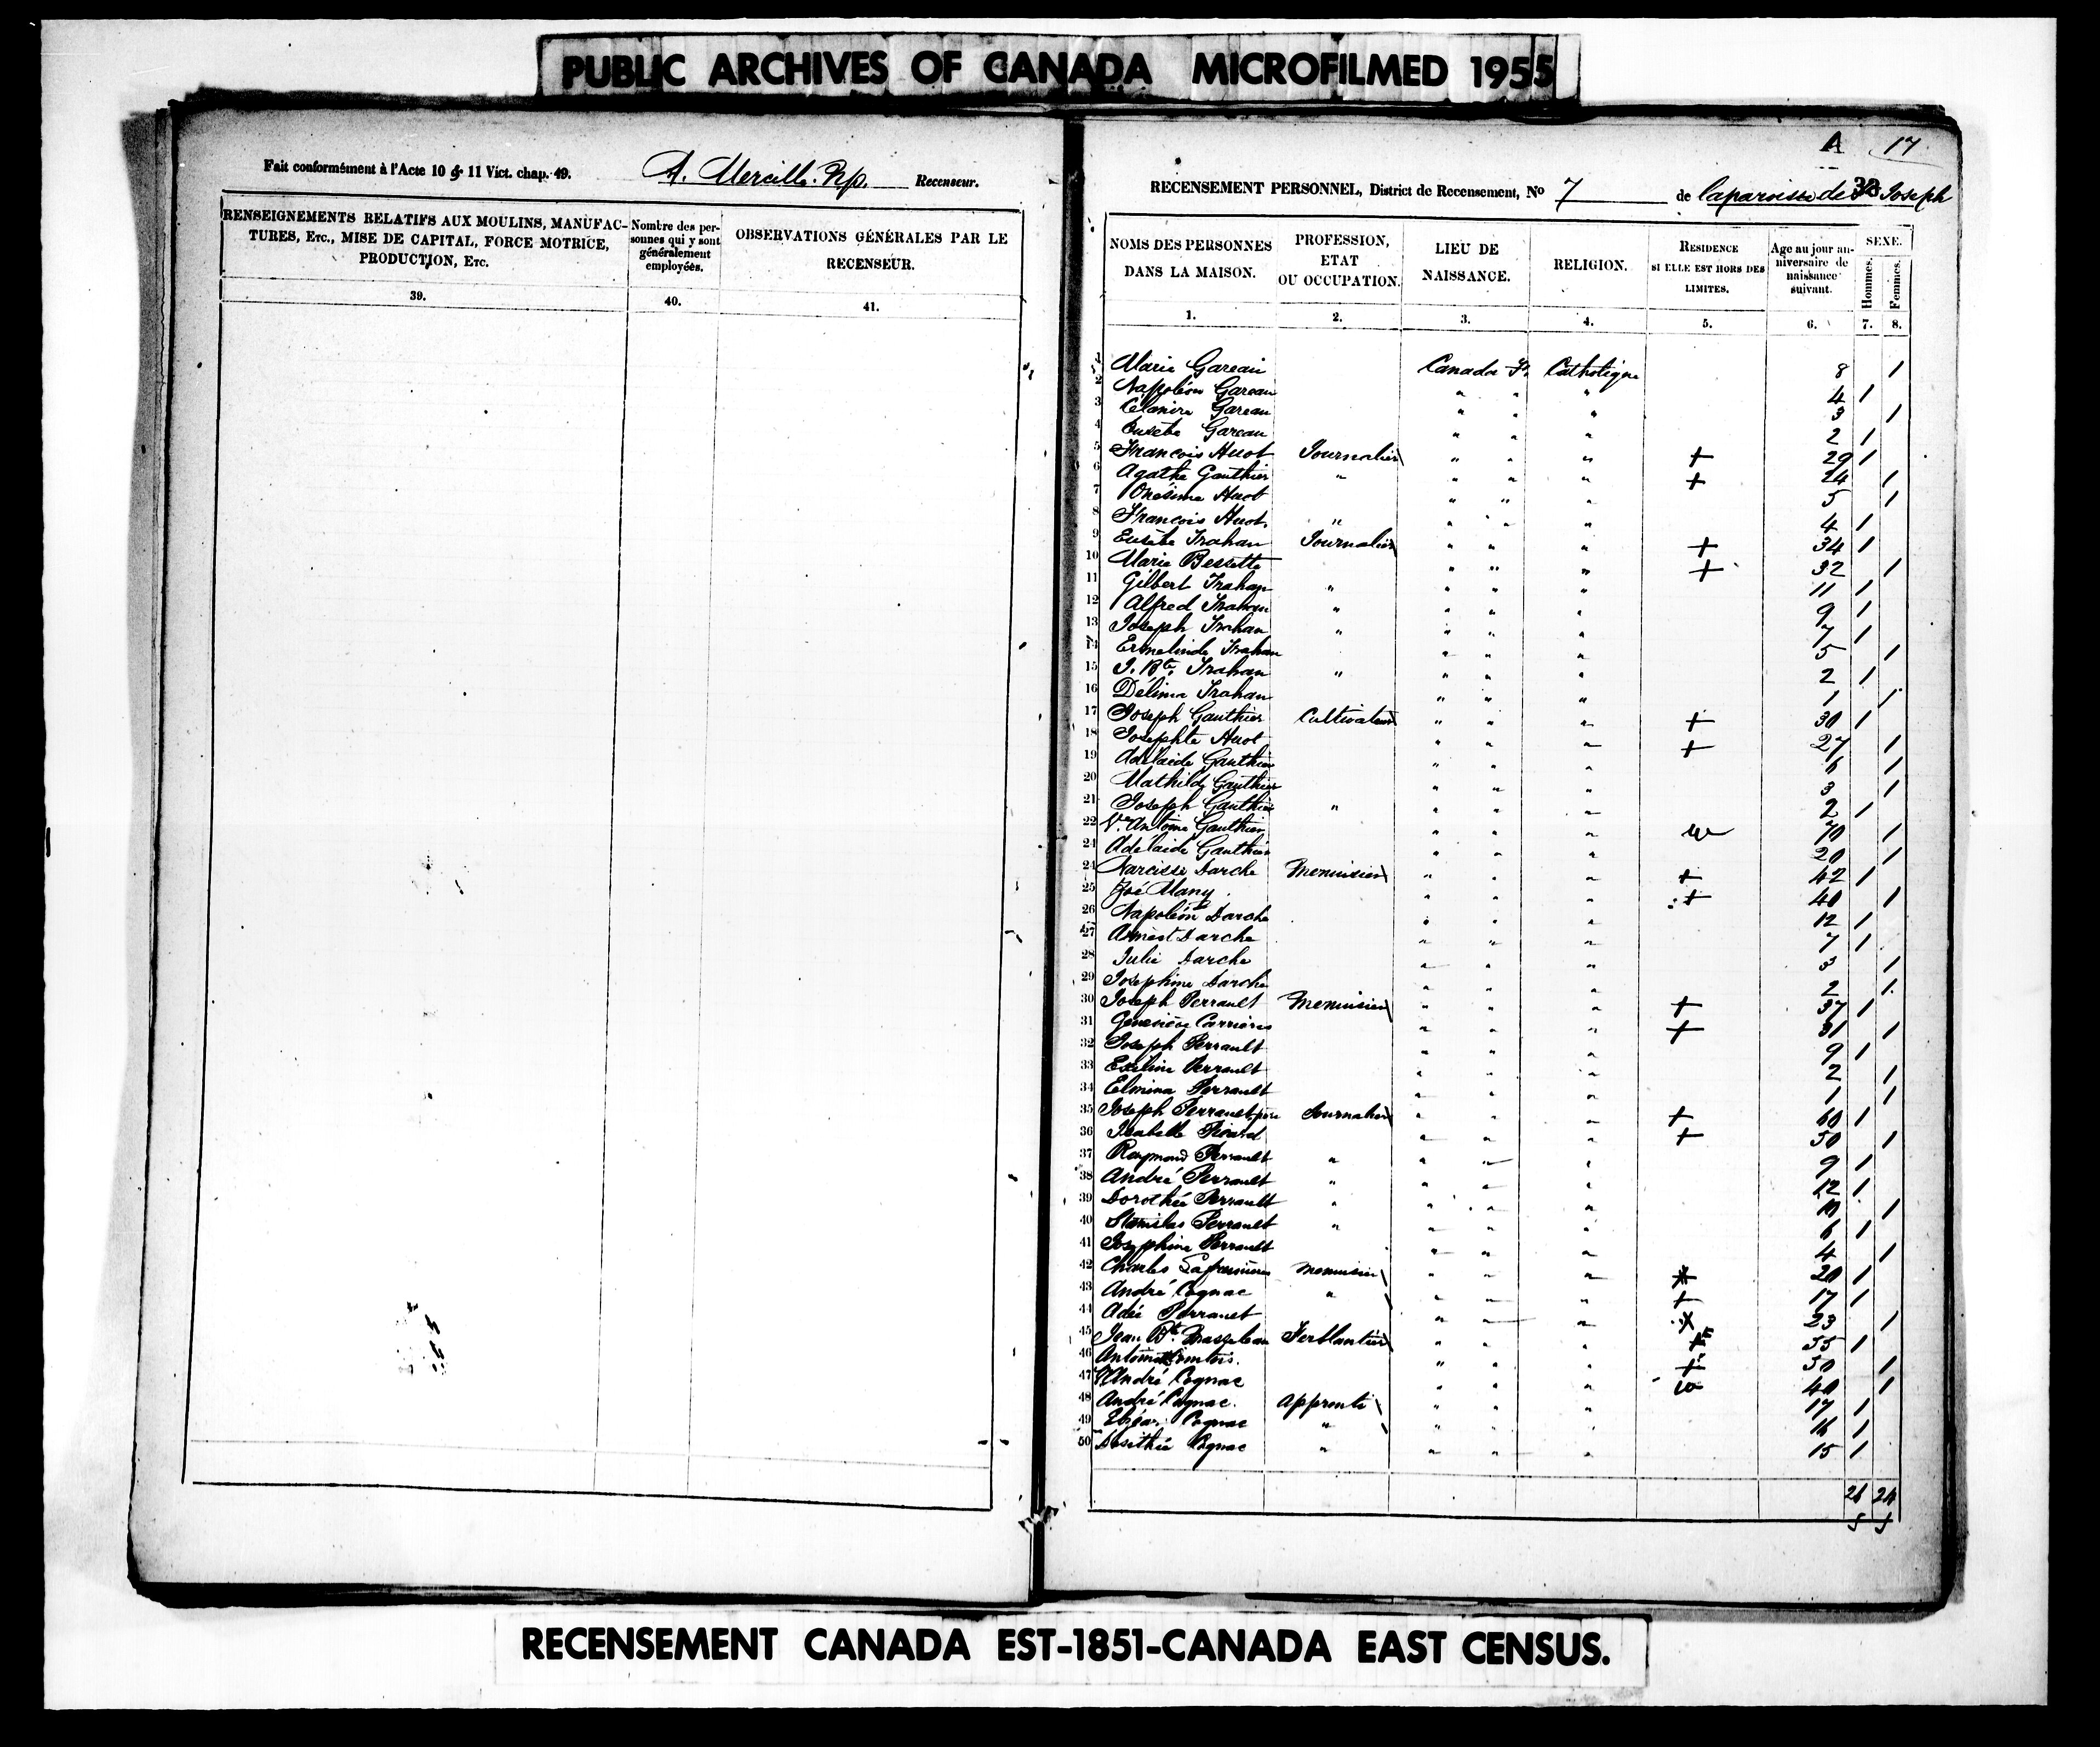 PUBLIC ARCHIVES OF CANADA MICROFILMED 1955
Fait conformément à l'Acte 10 & 11 Vict. chap. 49. Recenseur.
RENSEIGNEMENTS RELATIFS AUX MOULINS, MANUFACTURES, ETC., MISE DE CAPITAL, FORCE MOTRICE, PRODUCTION, ETC.
Nombre des personnes qui y sont généralement employées.
OBSERVATIONS GÉNÉRALES PAR LE RECENSEUR.
39. 40. 41.
A 17
RECENSEMENT PERSONNEL, District de Recensement, No 7 de la paroisse de St Joseph
33
NOMS DES PERSONNES DANS LA MAISON.
PROFESSION, ETAT OU OCCUPATION.
LIEU DE NAISSANCE.
RELIGION.
RESIDENCE SI ELLE EST HORS DES LIMITES.
Age au jour anniversaire de naissance suivant.
SEXE.
Hommes. Femmes.
1. 2. 3. 4. 5. 6. 7. 8.
1 Marie Gareau Canada Fr. Catholique 8 1
2 Napoléon Gareau " " " 4 1
3 Gareau " " " 3 1
4 Eusèbe Gareau " " " 2 1
5 François Huot Journalier " " " + 29 1
6 Agathe Gauthier " " " " + 24 1
7 Onésime Huot " " " 5 1
8 François Huot " " " " 4 1
9 Eusèbe Trahan Journalier " " " + 34 1
10 Marie Bessette " " " + 32 1
11 Gilbert Trahan " " " " 11 1
12 Alfred Trahan " " " " 9 1
13 Joseph Trahan " " " " 7 1
14 Ermelinde Trahan " " " 5 1
15 J. Bte. Trahan " " " " 2 1
16 Délima Trahan " " " 1 1
17 Joseph Gauthier Cultivateur " " " + 30 1
18 Josephte Huot " " " + 27 1
19 Adélaide Gauthier " " " 6 1
20 Mathilde Gauthier " " " 3 1
21 Joseph Gauthier " " " " 2 1
22 Ve Antoine Gauthier " " " 70 1
21 Adélaide Gauthier " " " 20 1
24 Narcisse Darche Menuisier " " " + 42 1
25 Zoé Many " " " + 40 1
26 Napoléon Darche " " " 12 1
27 Darche " " " 7 1
28 Julie Darche " " " 3 1
29 Josephine Darche " " " 2 1
30 Joseph Perrault Menuisier " " " + 37 1
31 Geneviève Carrières " " " + 31 1
32 Joseph Perrault " " " 9 1
33 Perrault " " " 2 1
34 Elmina Perrault " " " 1 1
35 Joseph Perrault père Journalier " " " + 60 1
36 Isabelle " " " + 50 1
37 Raymond Perrault " " " " 9 1
38 André Perrault " " " " 12 1
39 Dorothée Perrault " " " " 10 1
40 Stanislas Perrault " " " " 6 1
41 Josephine Perrault " " " 4 1
42 Charles Menuisier " " " 20 1
43 André Cognac " " " " + 17 1
44 Perrault " " " 23 1
45 Jean Bte. Ferblantier " " " + 55 1
46 " " " + 50 1
47 Ve André Cognac " " " 40 1
48 André Cognac Apprenti " " " 17 1
49 Cognac " " " " 16 1
50 Cognac " " " " 15 1
26 24
RECENSEMENT CANADA EST-1851-CANADA EAST CENSUS.